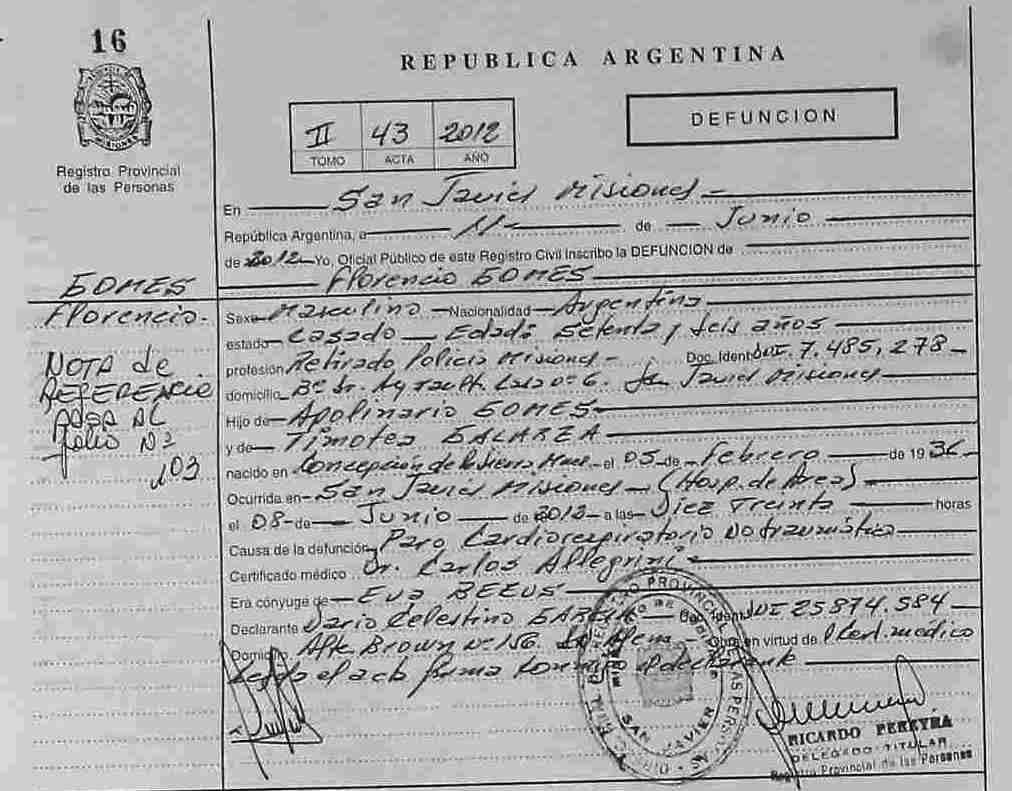 16
REPUBLICA ARGENTINA
MISIONES
Registro Provincial
de las Personas
II 43 2012
TOMO ACTA AÑO
DEFUNCION
En San Javier Misiones
República Argentina, a 11 de Junio
de 2012 Yo, Oficial Público de este Registro Civil Inscribo la DEFUNCION de
Florencio GOMES
GOMES
Florencio.
NOTA de
REFERENCIA
PASA AL
folio Nº
103
Sexo Masculino Nacionalidad Argentina
estado Casado Edad: Setenta y seis años
profesión Retirado Policia Misiones Doc. Ident. DNI. 7.485.278
domicilio Bº Casa nº 6. San Javier Misiones
Hijo de Apolinario GOMES
y de Timotea GALARZA
nacido en Concepción de la Sierra Mnes el 05 de Febrero de 1936
Ocurrida en San Javier Misiones (Hosp. de Area)
el 08 de Junio de 2012 a las Diez Treinta horas
Causa de la defunción Paro Cardiorespiratorio No traumático
Certificado médico Dr. Carlos Allegrini
Era cónyuge de Eva
Declarante Dario Celestino Doc. Ident. DNI 25874.584
Domicilio Alte Brown nº 156. Obra en virtud de Cert. médico
Leida el acta firma conmigo el declarante
SAN JAVIER
RICARDO PEREYRA
DELEGADO TITULAR
Registro Provincial de las Personas